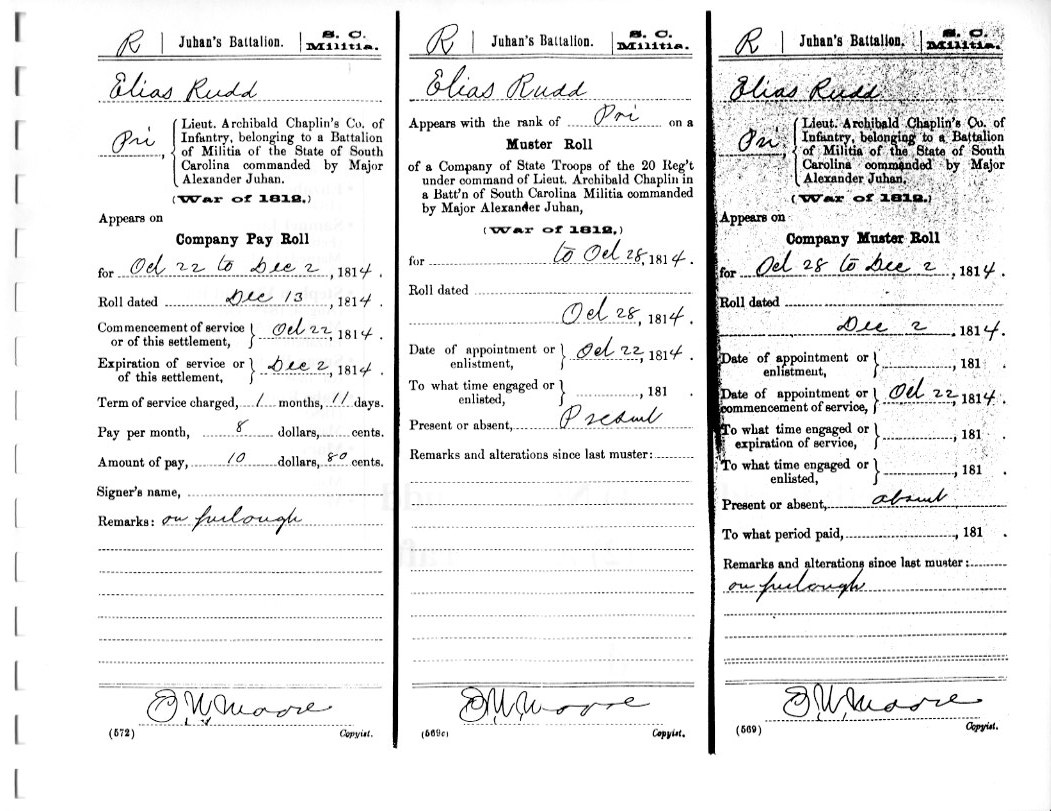 R | Juhan's Battalion. | S. C. Militia.
Elias Rudd
Pri, { Lieut. Archibald Chaplin's Co. of
Infantry, belonging to a Battalion
of Militia of the State of South
Carolina commanded by Major
Alexander Juhan.
(War of 1812.)
Appears on
Company Pay Roll
for Oct 22 to Dec 2, 1814.
Roll dated Dec 13, 1814.
Commencement of service
or of this settlement, } Oct 22, 1814.
Expiration of service or
of this settlement, } Dec 2, 1814.
Term of service charged, 1 months, 11 days.
Pay per month, 8 dollars, cents.
Amount of pay, 10 dollars, 80 cents.
Signer's name,
Remarks: on furlough
E W Moore
(572) Copyist.
R | Juhan's Battalion. | S. C. Militia.
Elias Rudd
Appears with the rank of Pri on a
Muster Roll
of a Company of State Troops of the 20 Reg't
under command of Lieut. Archibald Chaplin in
a Batt'n of South Carolina Militia commanded
by Major Alexander Juhan,
(War of 1812.)
for to Oct 28, 1814.
Roll dated
Oct 28, 1814.
Date of appointment or
enlistment, } Oct 22, 1814.
To what time engaged or
enlisted, } , 181 .
Present or absent, Present
Remarks and alterations since last muster:
E W Moore
(569c) Copyist.
R | Juhan's Battalion. | S. C. Militia.
Elias Rudd
Pri, { Lieut. Archibald Chaplin's Co. of
Infantry, belonging to a Battalion
of Militia of the State of South
Carolina commanded by Major
Alexander Juhan.
(War of 1812.)
Appears on
Company Muster Roll
for Oct 28 to Dec 2, 1814.
Roll dated
Dec 2, 1814.
Date of appointment or
enlistment, } , 181 .
Date of appointment or
commencement of service, } Oct 22, 1814.
To what time engaged or
expiration of service, } , 181 .
To what time engaged or
enlisted, } , 181 .
Present or absent, absent
To what period paid, , 181 .
Remarks and alterations since last muster:
on furlough
E W Moore
(569) Copyist.